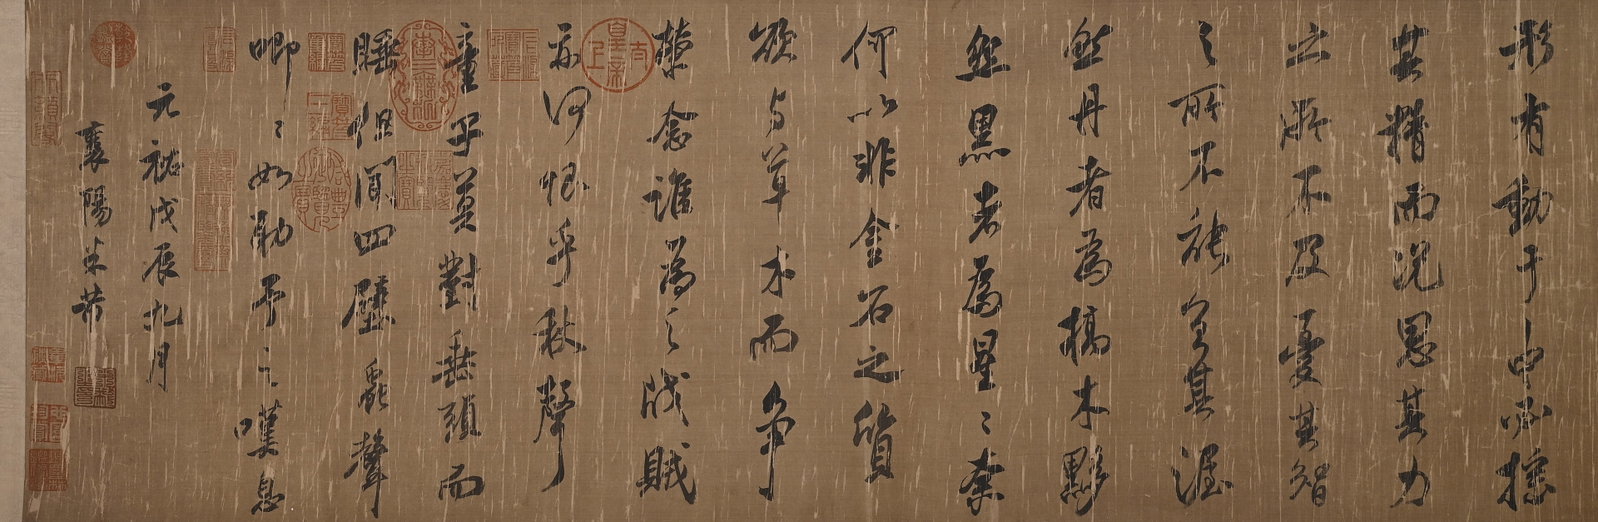 形有動于中必搖
其精而況思其力
之所不及憂其智
之所不能宜其渥
然丹者為槁木黟
然黑者為星〻奈
何以非金石之質
欲与草木而爭
榮念誰為之戕賊
亦何恨乎秋聲
童子莫對垂頭而
睡但聞四壁蟲聲
唧〻如助予之嘆息
元祐戊辰九月
襄陽米芾
太上皇帝